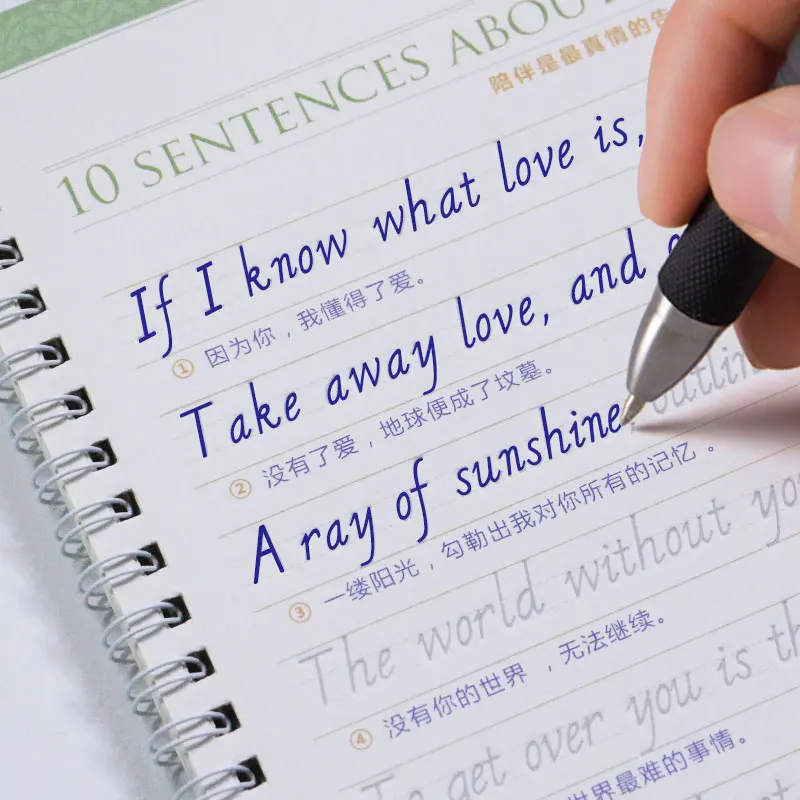 10 SENTENCES ABOUT
陪伴是最真情的告
If I know what love is,
① 因为你，我懂得了爱。
Take away love, and
② 没有了爱，地球便成了坟墓。
A ray of sunshine, outlin
③ 一缕阳光，勾勒出我对你所有的记忆。
The world without you
④ 没有你的世界，无法继续。
To get over you is th
世界最难的事情。